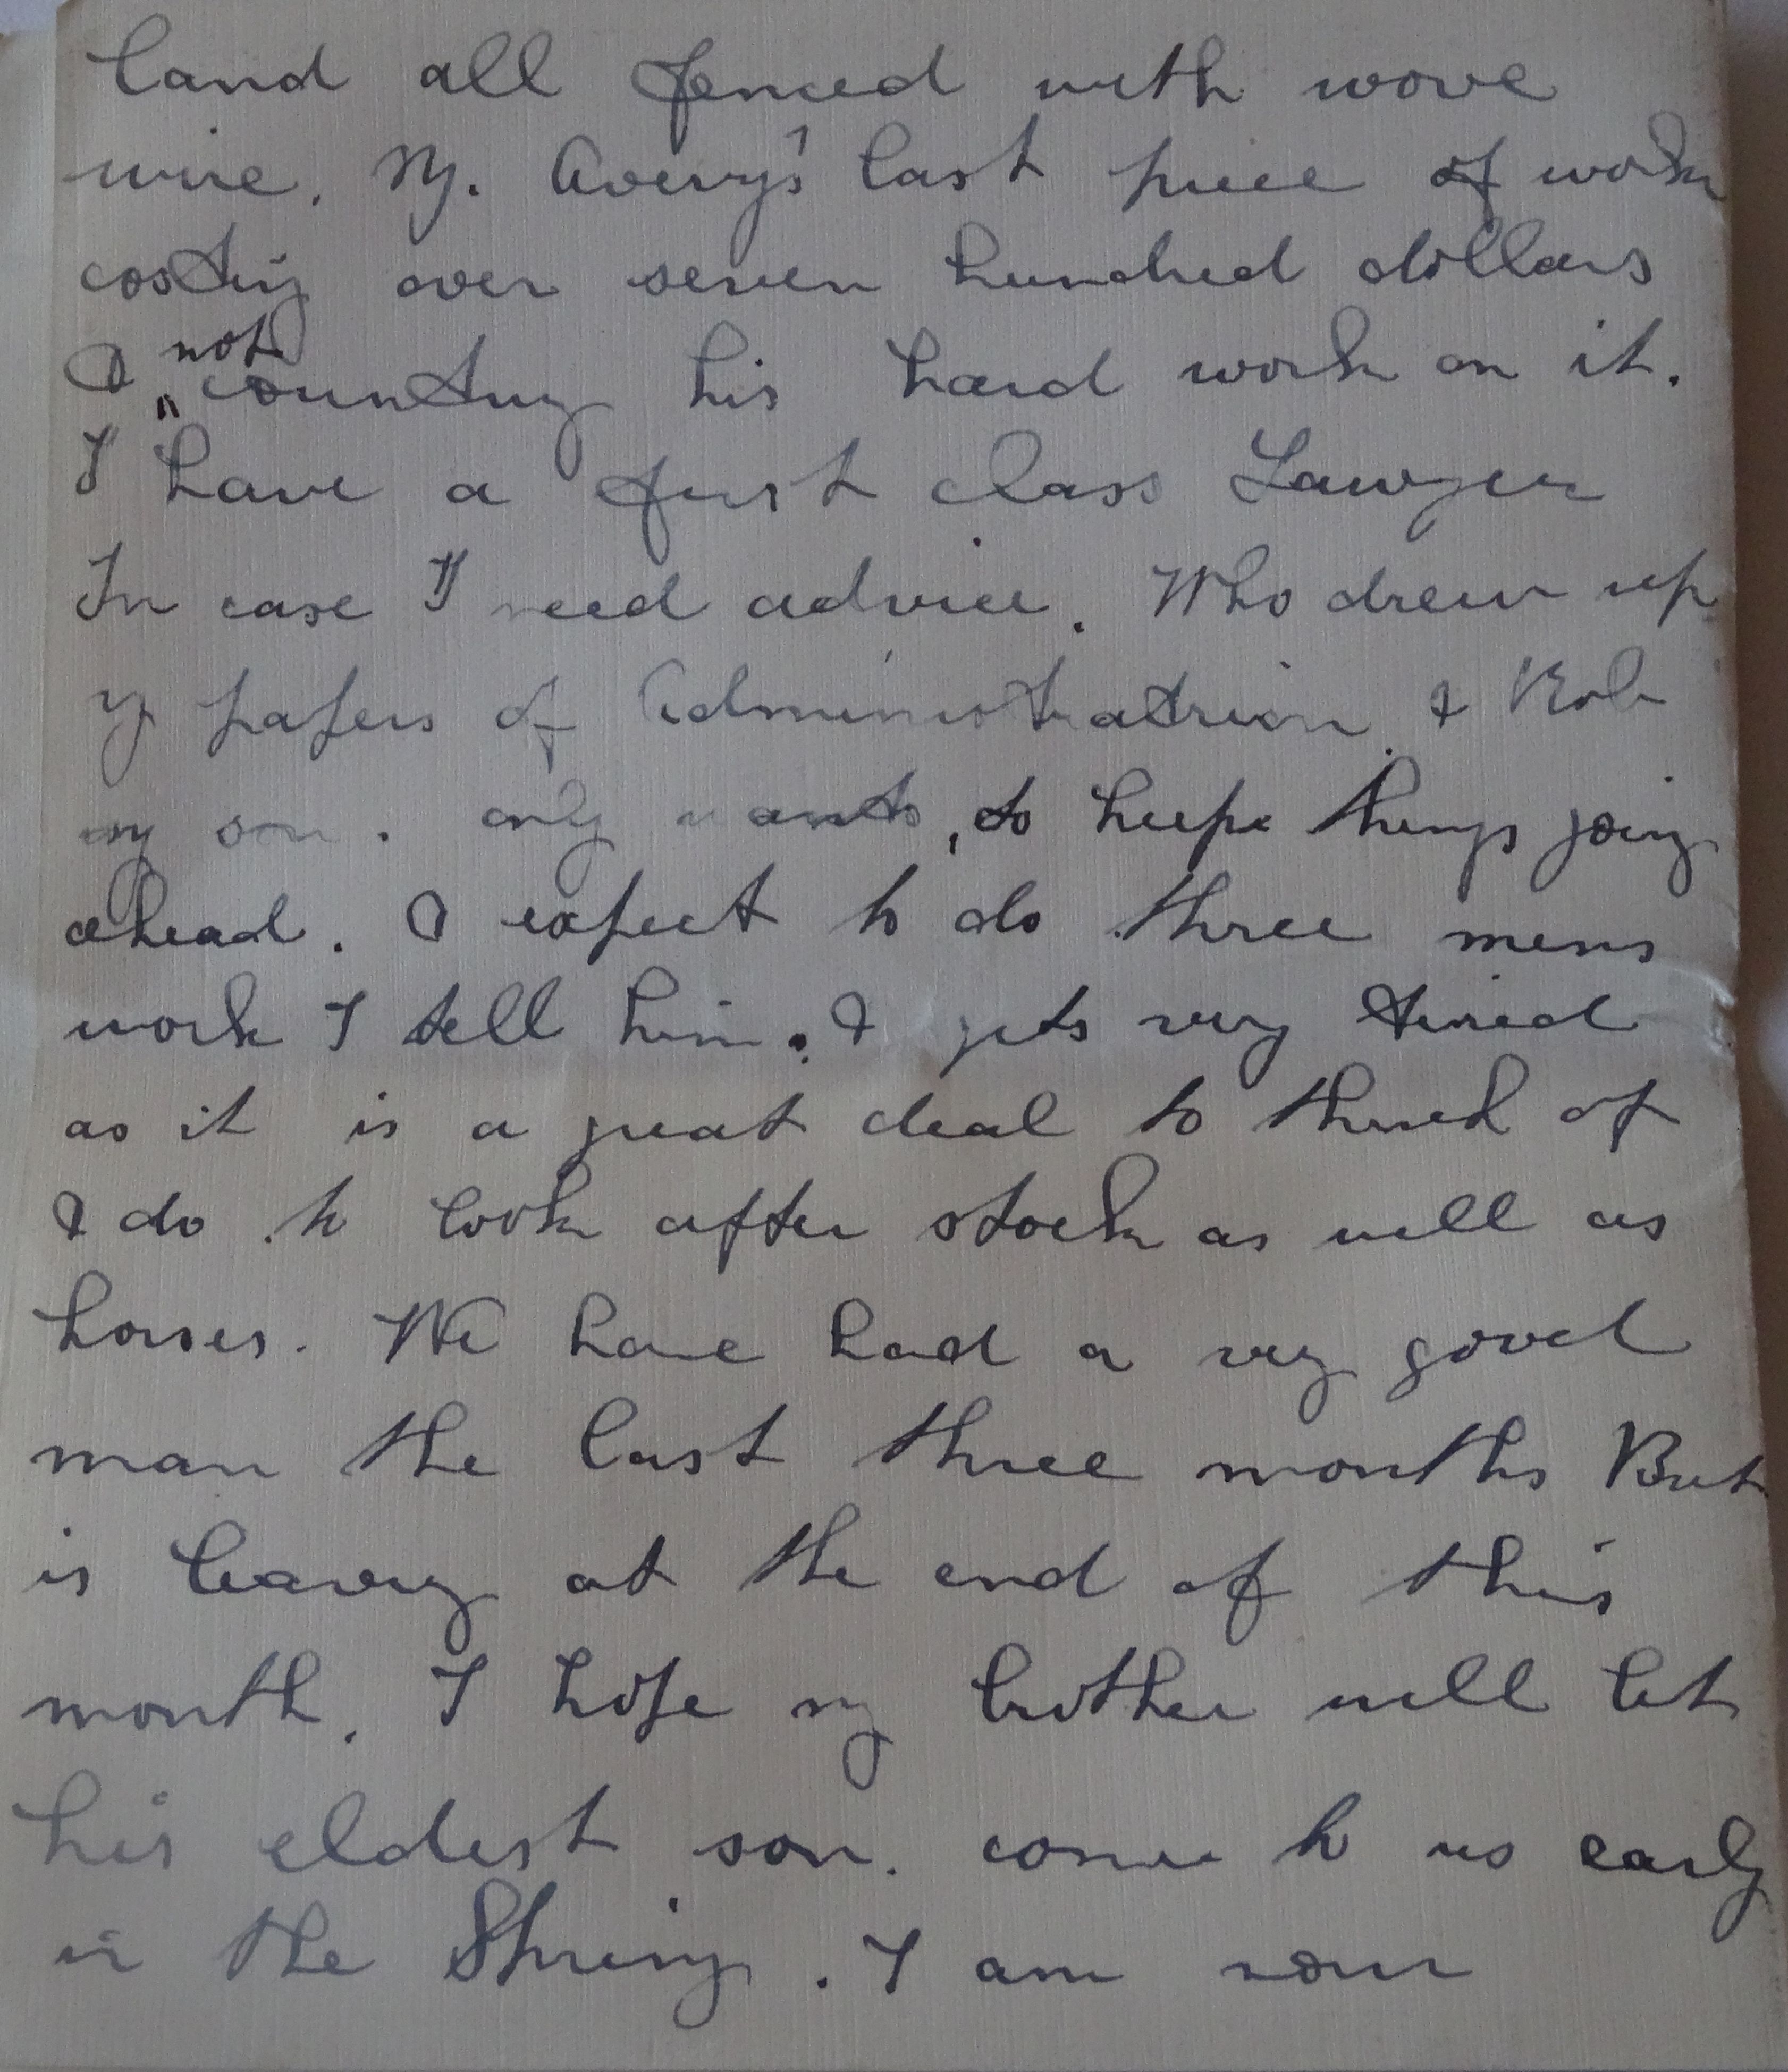 land all fenced with wove
wire. My. Avery's last piece of work
costing over seven hundred dollars
& not counting his hard work on it.
I have a first class Lawyer
In case I need advice. Who drew up
my papers of Administration. & Rob
my son. only wants, to keep things going
ahead. I expect to do three mens
work I tell him. & gets very tired
as it is a great deal to think of
& do to look after stock as well as
horses. We have had a very good
man the last three months But
is leaving at the end of this
month. I hope my brother will let
his eldest son. come to us early
in the Spring. I am now